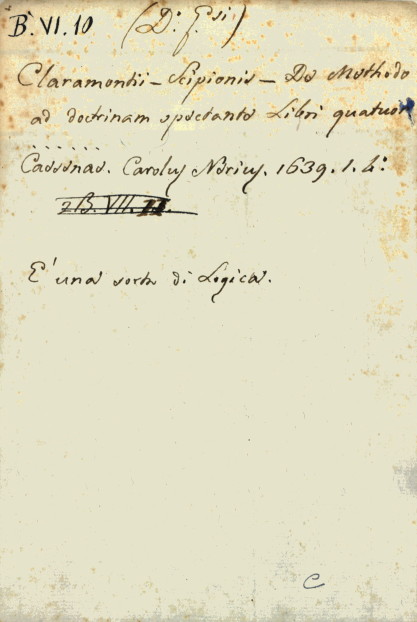 B. VI. 10 (D: Gesi)
Claramontii - Scipionis - De Methodo
ad doctrinam spectante Libri quatuor
. . . . . .
Caesenae. Carolus Nerius. 1639. 1. 4:
2B. VII. 22.
E' una sorte di Logica.
C